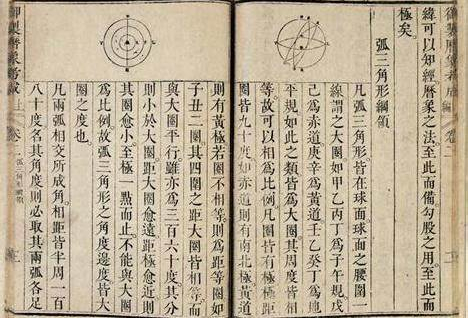 緯可以知經曆象之法至此而備勾股之用至此而
極矣
弧三角形綱領
凡弧三角形皆在球面球面之腰圍一
線謂之大圈如甲乙丙丁爲子午規戊
己爲赤道庚辛爲黃道壬乙癸丁爲地
平規如此之類皆爲大圈其周度
等故可以相爲比例凡圈皆有極距
圈皆九十度如赤道則有南北極黃道
則有黃極若圈不相等則爲
子丑二圈其四圍之距大圈皆相等而
大圈平行雖亦爲三百六十度其分
則小於大圈距大圈愈遠距極愈近則
其圈愈小至極一點而止不能與大圈
爲比例故弧三角形之角度邊度皆大
圈之度也
凡兩弧相交所成角相距皆半周一百
八十度名其角度則必取其兩弧各足
御製曆象考成 上 卷二 弧三角形綱領